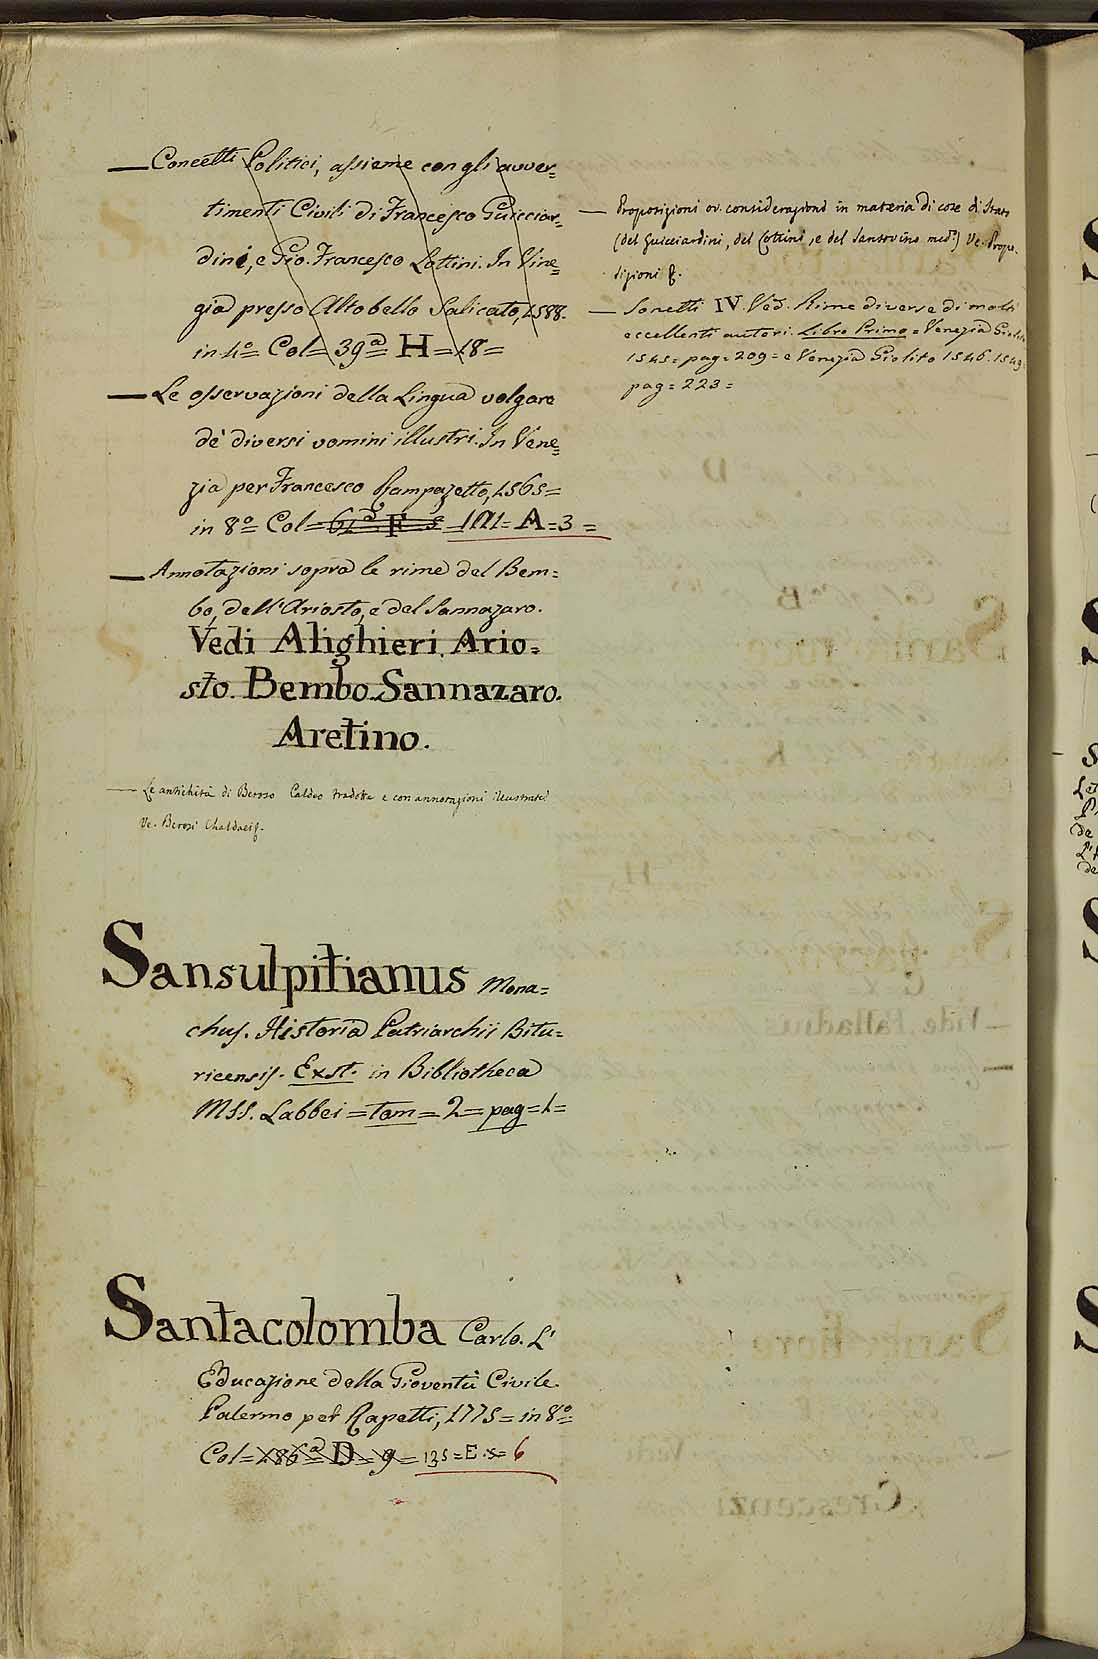 — Concetti Politici, assieme con gli avver=
timenti Civili di Francesco Guicciar=
dini, e Gio. Francesco Lottini. In Vine=
gia presso Altobello Salicato, 1588.
in 4º= Col= 39ª= H= 18=
— Le osservazioni della Lingua volgare
de' diversi uomini illustri. In Vene=
zia per Francesco Rampazetto, 1565=
in 8º= Col= 61ª= F= = 101= A=3=
— Annotazioni sopra le rime del Bem=
bo, dell'Ariosto, e del Sannazaro.
Vedi Alighieri. Ario=
sto. Bembo. Sannazaro.
Aretino.
— Le antichità di Beroso Caldeo tradotte e con annotazioni illustrate
Ve. Berosi Chaldaei
Sansulpitianus Mona=
chus. Historia Patriarchii Bitu=
ricensis. Exst. in Bibliotheca
MSS. Labbei = tom = 2 = pag = 1=
Santacolomba Carlo. L'
Educazione della Gioventù Civile.
Palermo per Rapetti, 1775= in 8º=
Col= 186ª= D= 9= 135=E.= 6
— Proposizioni ov. considerazioni in materia di cose di Stato
(del Guicciardini, del Lottini, e del Sansovino med.º) Ve. Propo.
sizioni
— Sonetti IV. Ved. Rime diverse di molti
eccellenti autori. Libro Primo = Venezia Giolito
1545= pag= 209= e Venezia Giolito 1546. 1549=
pag= 223=